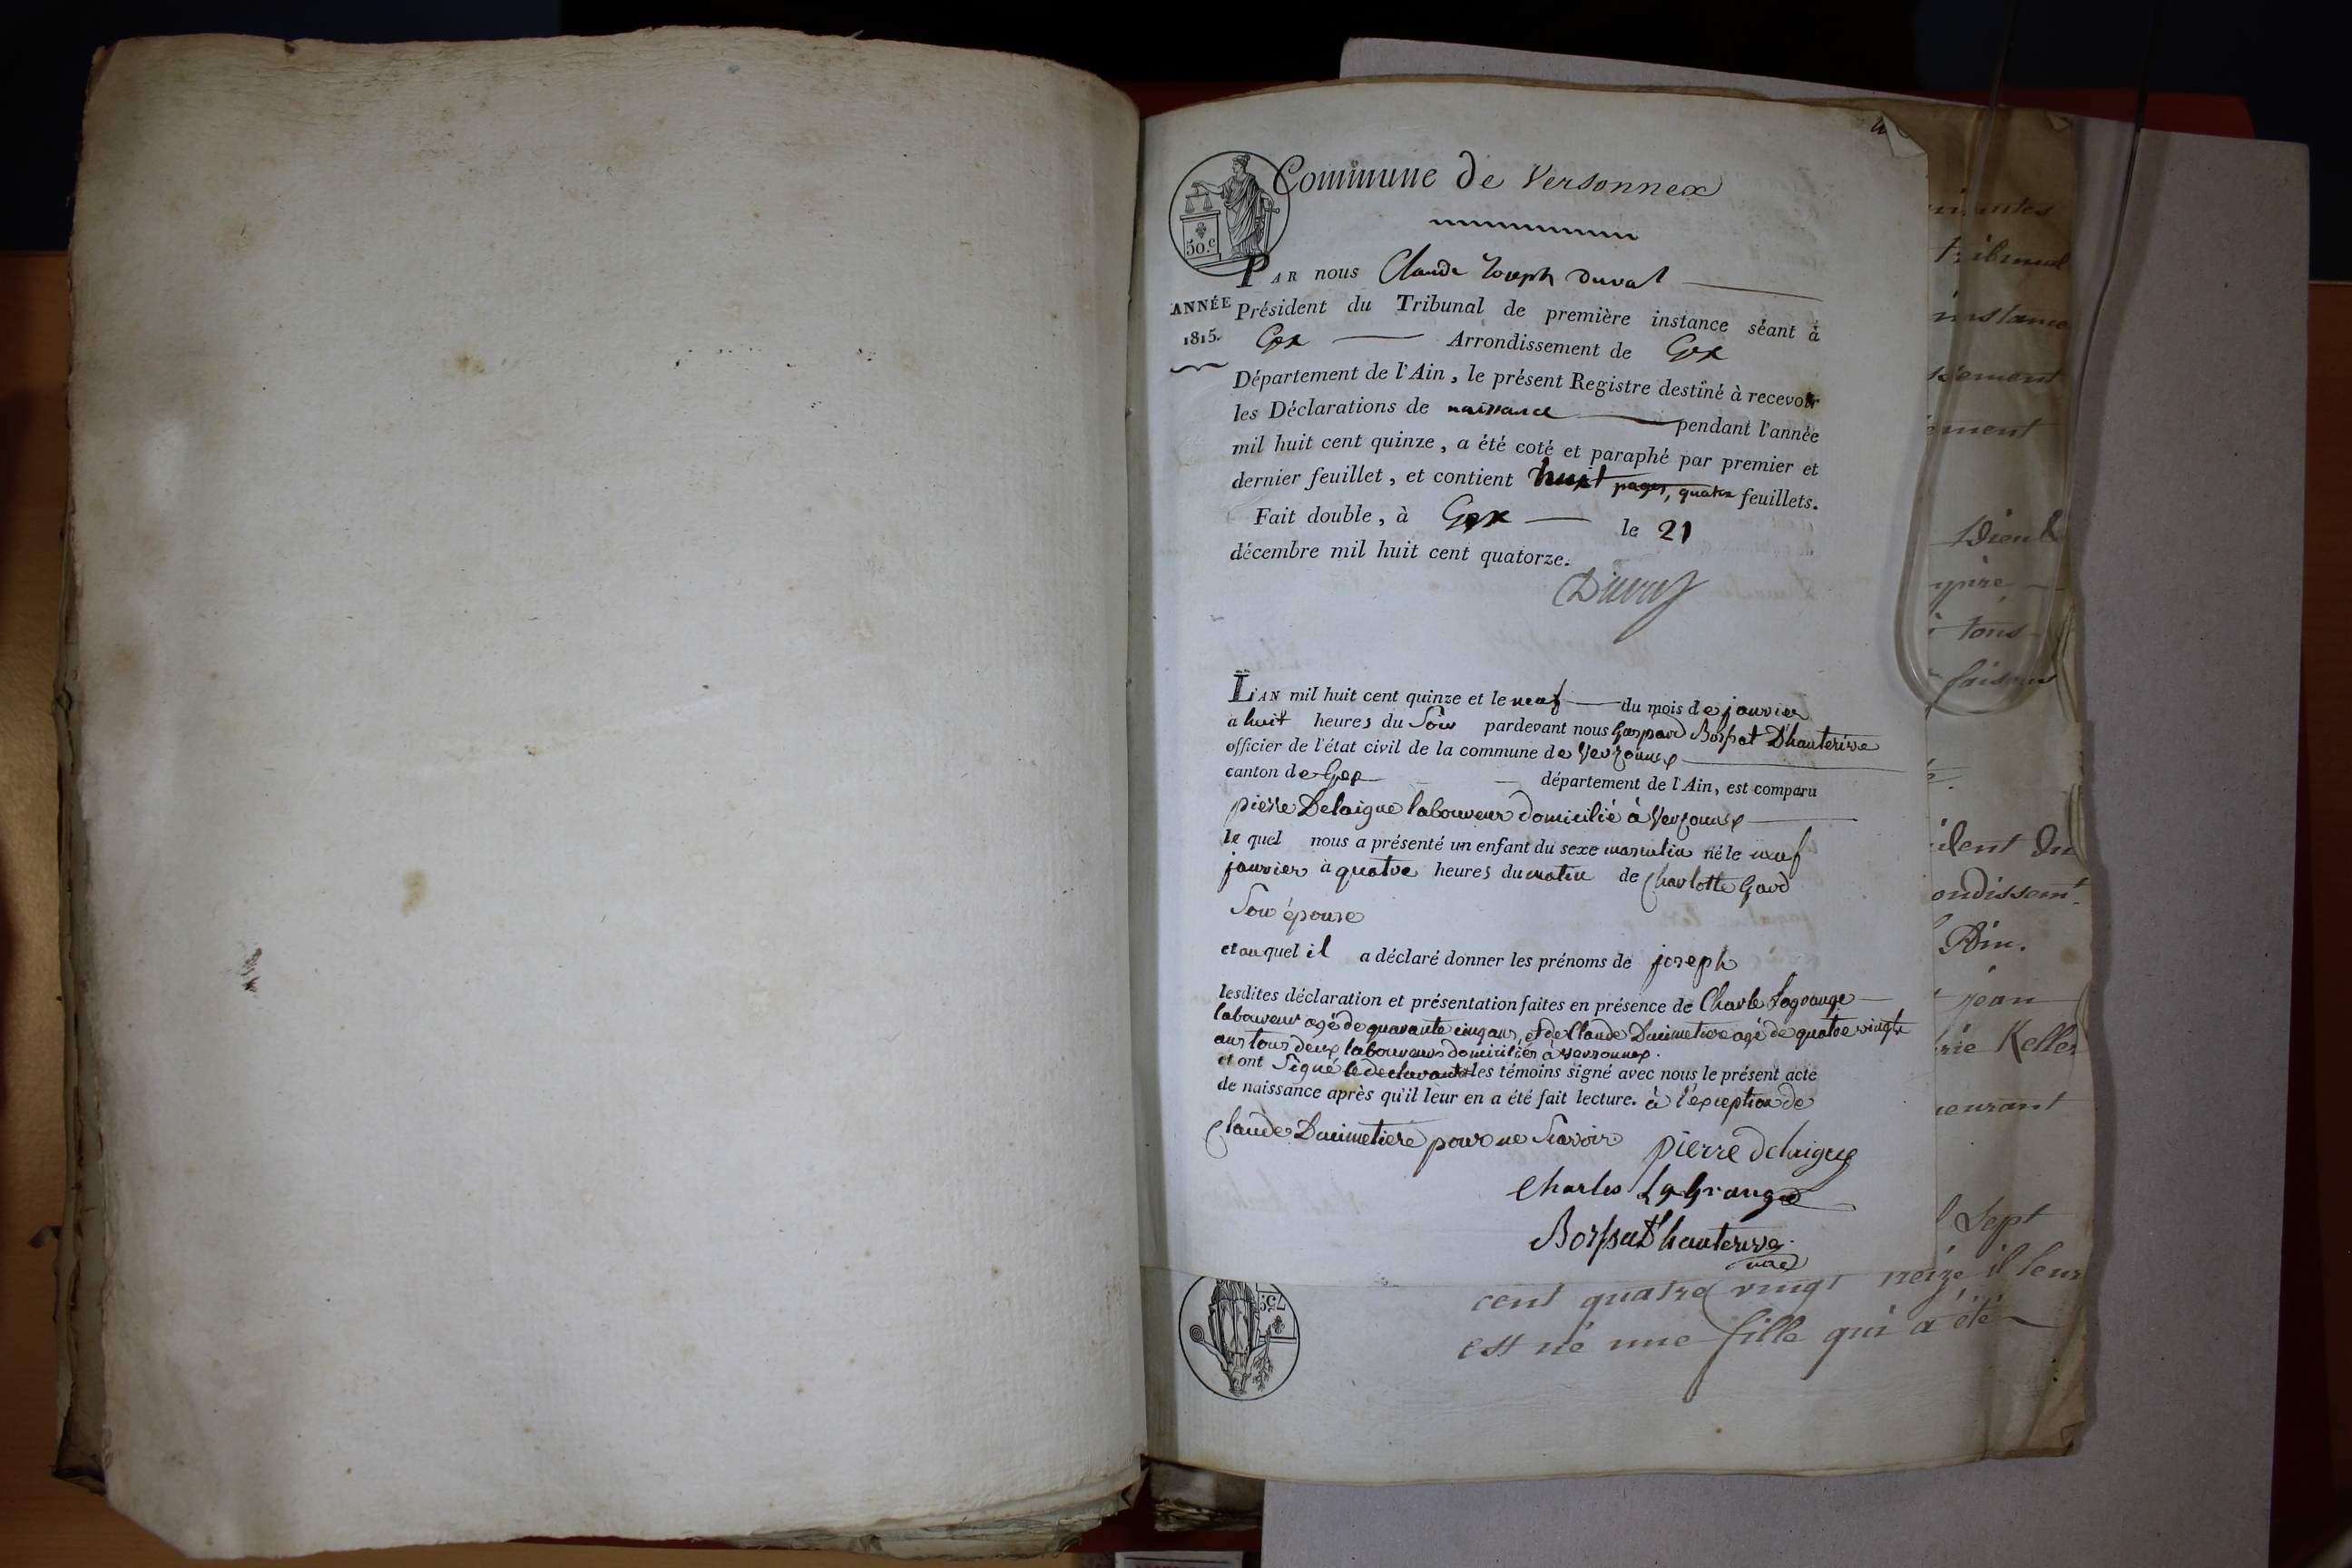 Commune de Versonnex
50.c
PAR nous Claude Joseph Duval
ANNÉE
1815.
Président du Tribunal de première instance séant à
Gex Arrondissement de Gex
Département de l'Ain, le présent Registre destiné à recevoir
les Déclarations de naissance pendant l'année
mil huit cent quinze, a été coté et paraphé par premier et
dernier feuillet, et contient huit pages, quatre feuillets.
Fait double, à Gex le 21
décembre mil huit cent quatorze.
Duval
L'AN mil huit cent quinze et le neuf du mois de janvier
a huit heures du Soir pardevant nous Gaspard Borssat Dhauterive
officier de l'état civil de la commune de Verzonnex
canton de Gex département de l'Ain, est comparu
pierre Delaigue laboureur domicilié à Verzonnex
le quel nous a présenté un enfant du sexe masculin né le neuf
janvier à quatre heures du matin de Charlotte Gard
Son épouse
et au quel il a déclaré donner les prénoms de joseph
lesdites déclaration et présentation faites en présence de Charle Lagrange
laboureur agé de quarante cinq ans, et de Claude Ducimetiere agé de quatre vingts
ans tous deux laboureurs domiciliés à Versonnex.
et ont Signé le declarant et les témoins signé avec nous le présent acte
de naissance après qu'il leur en a été fait lecture. à l'exception de
Claude Ducimetiere pour ne Scavoir
pierre delaigue
Charles Lagrange
Borssat Dhauterive
75.c
cent quatre vingt treize, il leur
est né une fille qui a été
tribunal
instance
ondissemt.
Ain.
jean
Keller
Sept